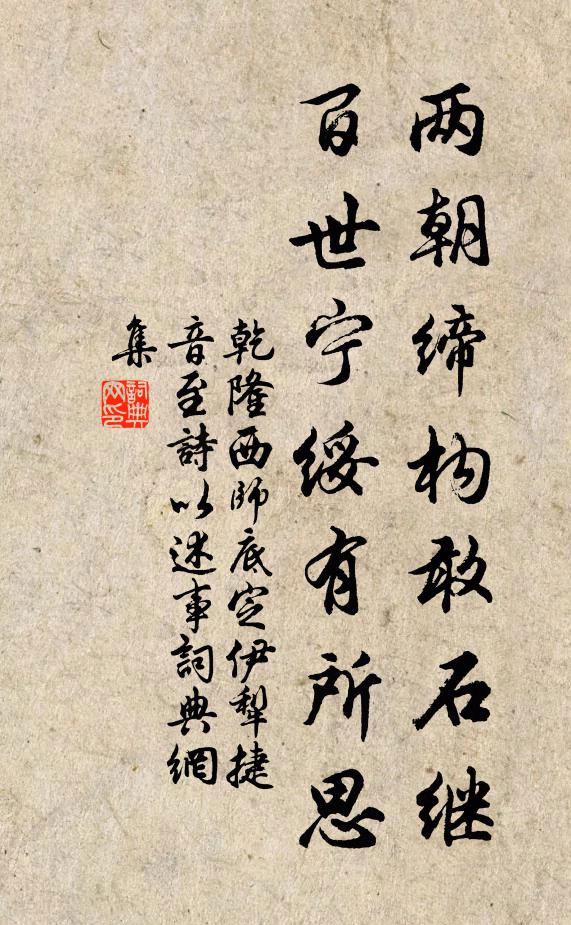 两朝缔构敢石继
百世宁绥有所思
乾隆西師底定伊犁捷
音至詩以述事詞典網
集
詞典
网印